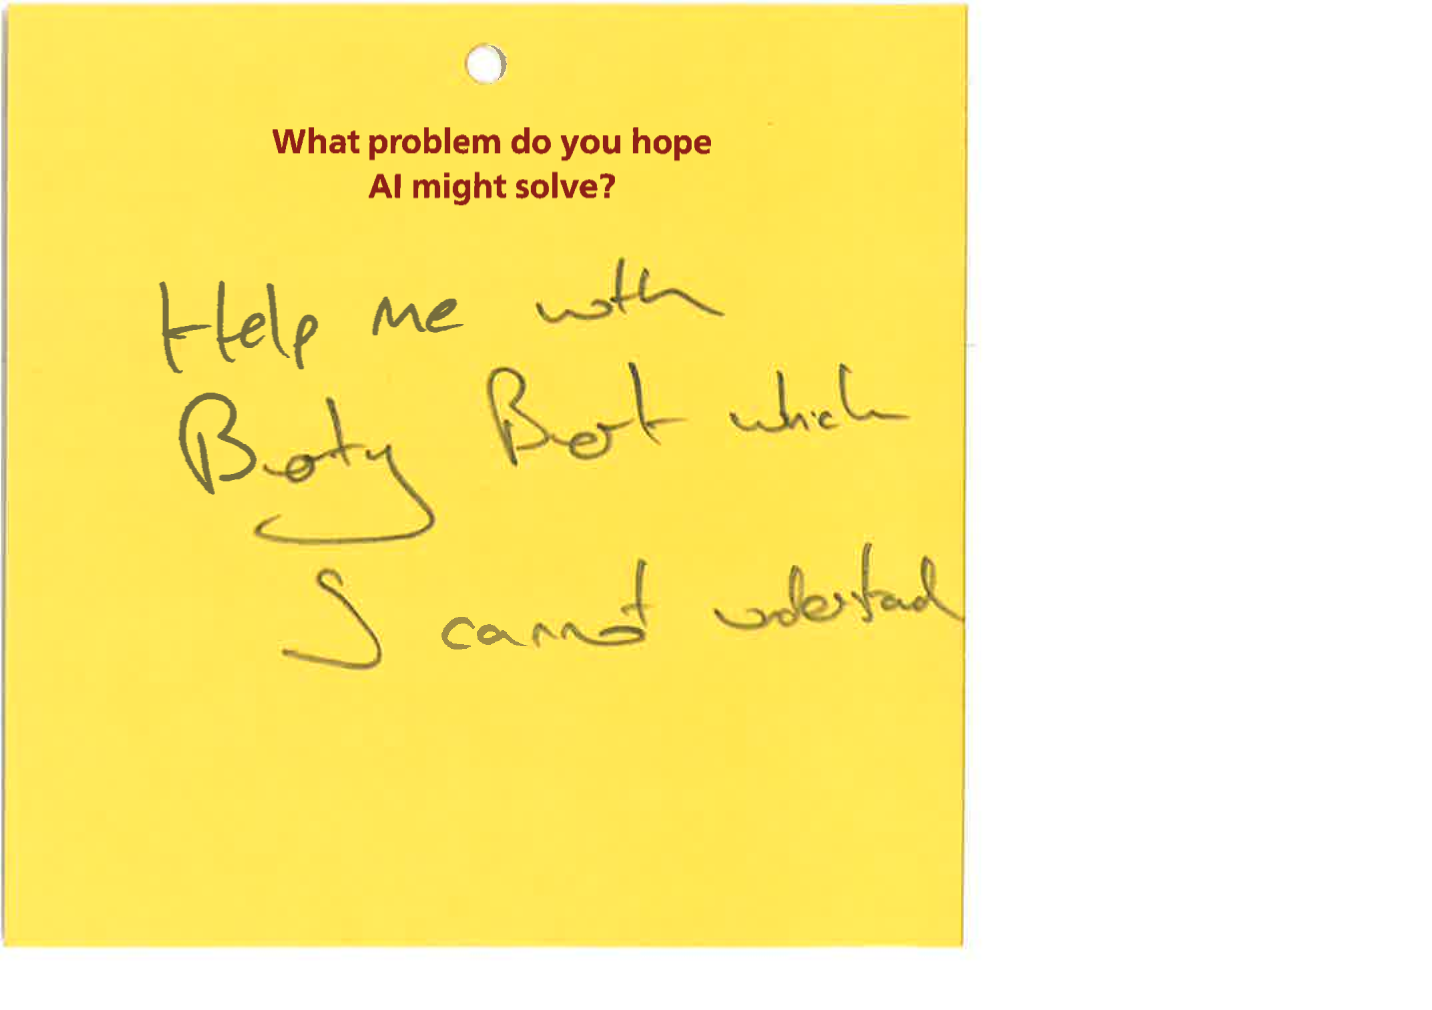 What problem do you hope
AI might solve?
Help me with
Boty Bot which
I cannot understand